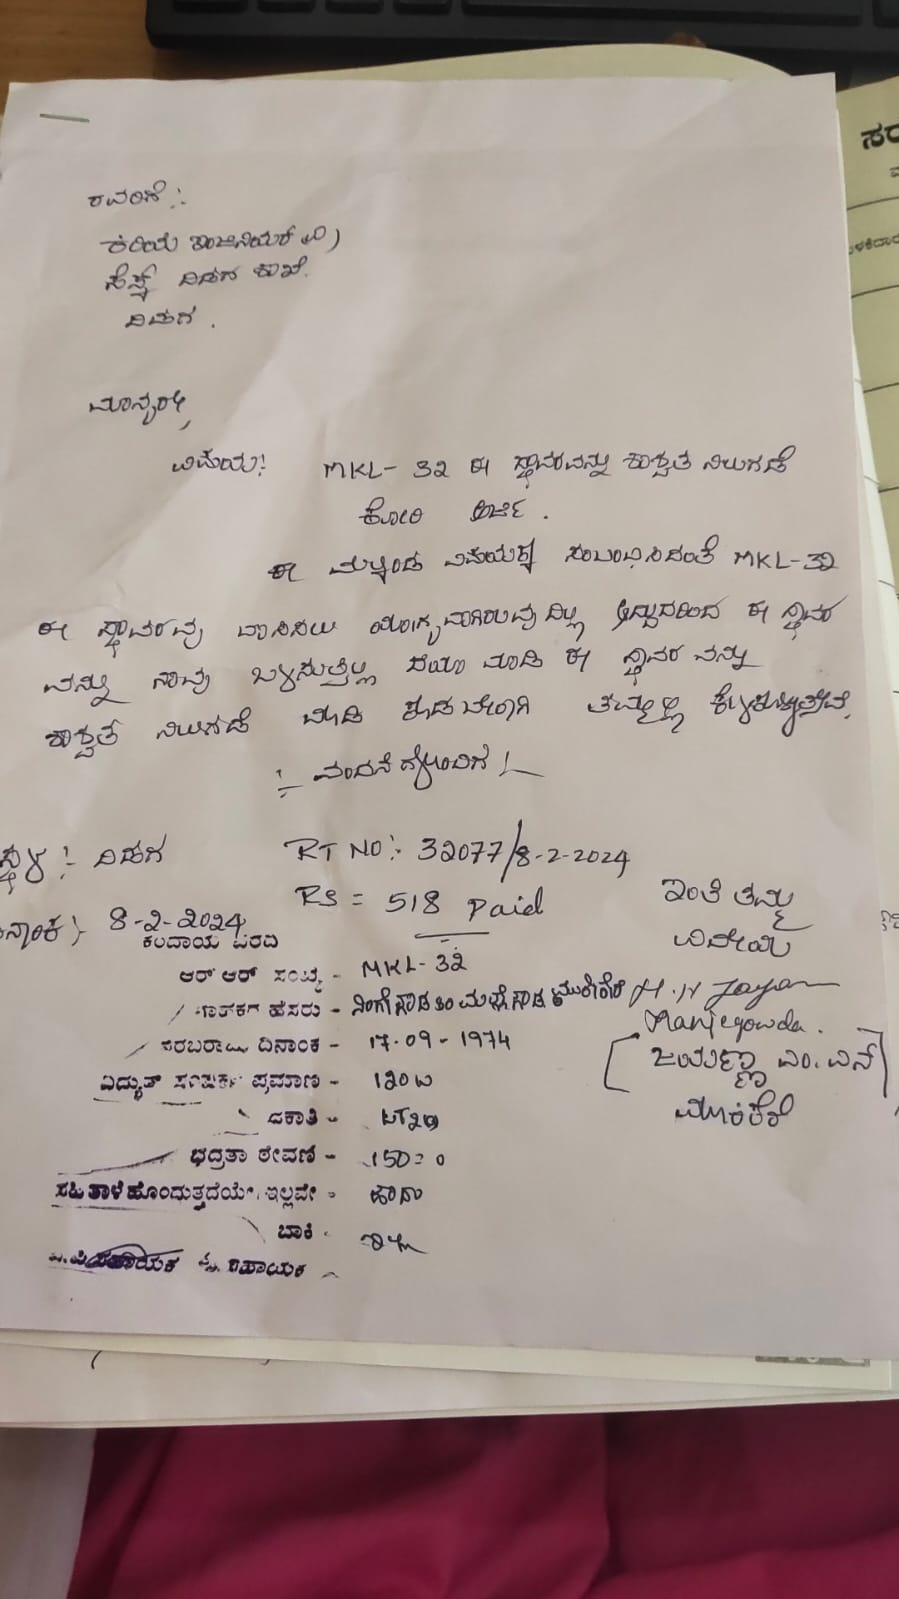 ರವರಿಗೆ:
ಕಿರಿಯ ಇಂಜಿನಿಯರ್ (ವಿ)
ಸೆಸ್ಕ್ ದಿಡಗ ಶಾಖೆ.
ದಿಡಗ.
ಮಾನ್ಯರೇ,
ವಿಷಯ: MKL-32 ಈ ಸ್ಥಾವರವನ್ನು ಶಾಶ್ವತ ನಿಲುಗಡೆ
ಕೋರಿ ಅರ್ಜಿ.
ಈ ಮೇಲ್ಕಂಡ ವಿಷಯಕ್ಕೆ ಸಂಬಂಧಿಸಿದಂತೆ MKL-32
ಈ ಸ್ಥಾವರವು ವಾಸಿಸಲು ಯೋಗ್ಯವಾಗಿರುವುದಿಲ್ಲ ಆದ್ದುದರಿಂದ ಈ ಸ್ಥಾವರ
ವನ್ನು ನಾವು ಬಳಸುತ್ತಿಲ್ಲ ದಯಾ ಮಾಡಿ ಈ ಸ್ಥಾವರ ವನ್ನು
ಶಾಶ್ವತ ನಿಲುಗಡೆ ಮಾಡಿ ಕೊಡಬೇಕಾಗಿ ತಮ್ಮಲ್ಲಿ ಕೇಳಿಕೊಳ್ಳುತ್ತೇವೆ.
:- ವಂದನೆಗಳೊಂದಿಗೆ :-
ಸ್ಥಳ :- ದಿಡಗ RT NO:- 32077/8-2-2024
8-2-2024 RS = 518 Paid ಇಂತಿ ತಮ್ಮ
ಕಂದಾಯ ವರದಿ ವಿಧೇಯ
ಆರ್ ಆರ್ ಸಂಖ್ಯೆ - MKL-32
ಗ್ರಾಹಕರ ಹೆಸರು - ನಿಂಗೇಗೌಡ
Manjegowda.
ಸರಬರಾಜು ದಿನಾಂಕ - 17-09-1974 [ಜಯಣ್ಣ ಎಂ.ಎನ್]
ವಿದ್ಯುತ್ ಸಂಪರ್ಕ ಪ್ರಮಾಣ - 120 W
ಜಕಾತಿ -
ಭದ್ರತಾ ಠೇವಣಿ - 150=0
ಸಹಿ ತಾಳೆ ಹೊಂದುತ್ತದೆಯೇ, ಇಲ್ಲವೇ - ಹೌದು
ಬಾಕಿ - ಇಲ್ಲ
ಸಹಾಯಕ